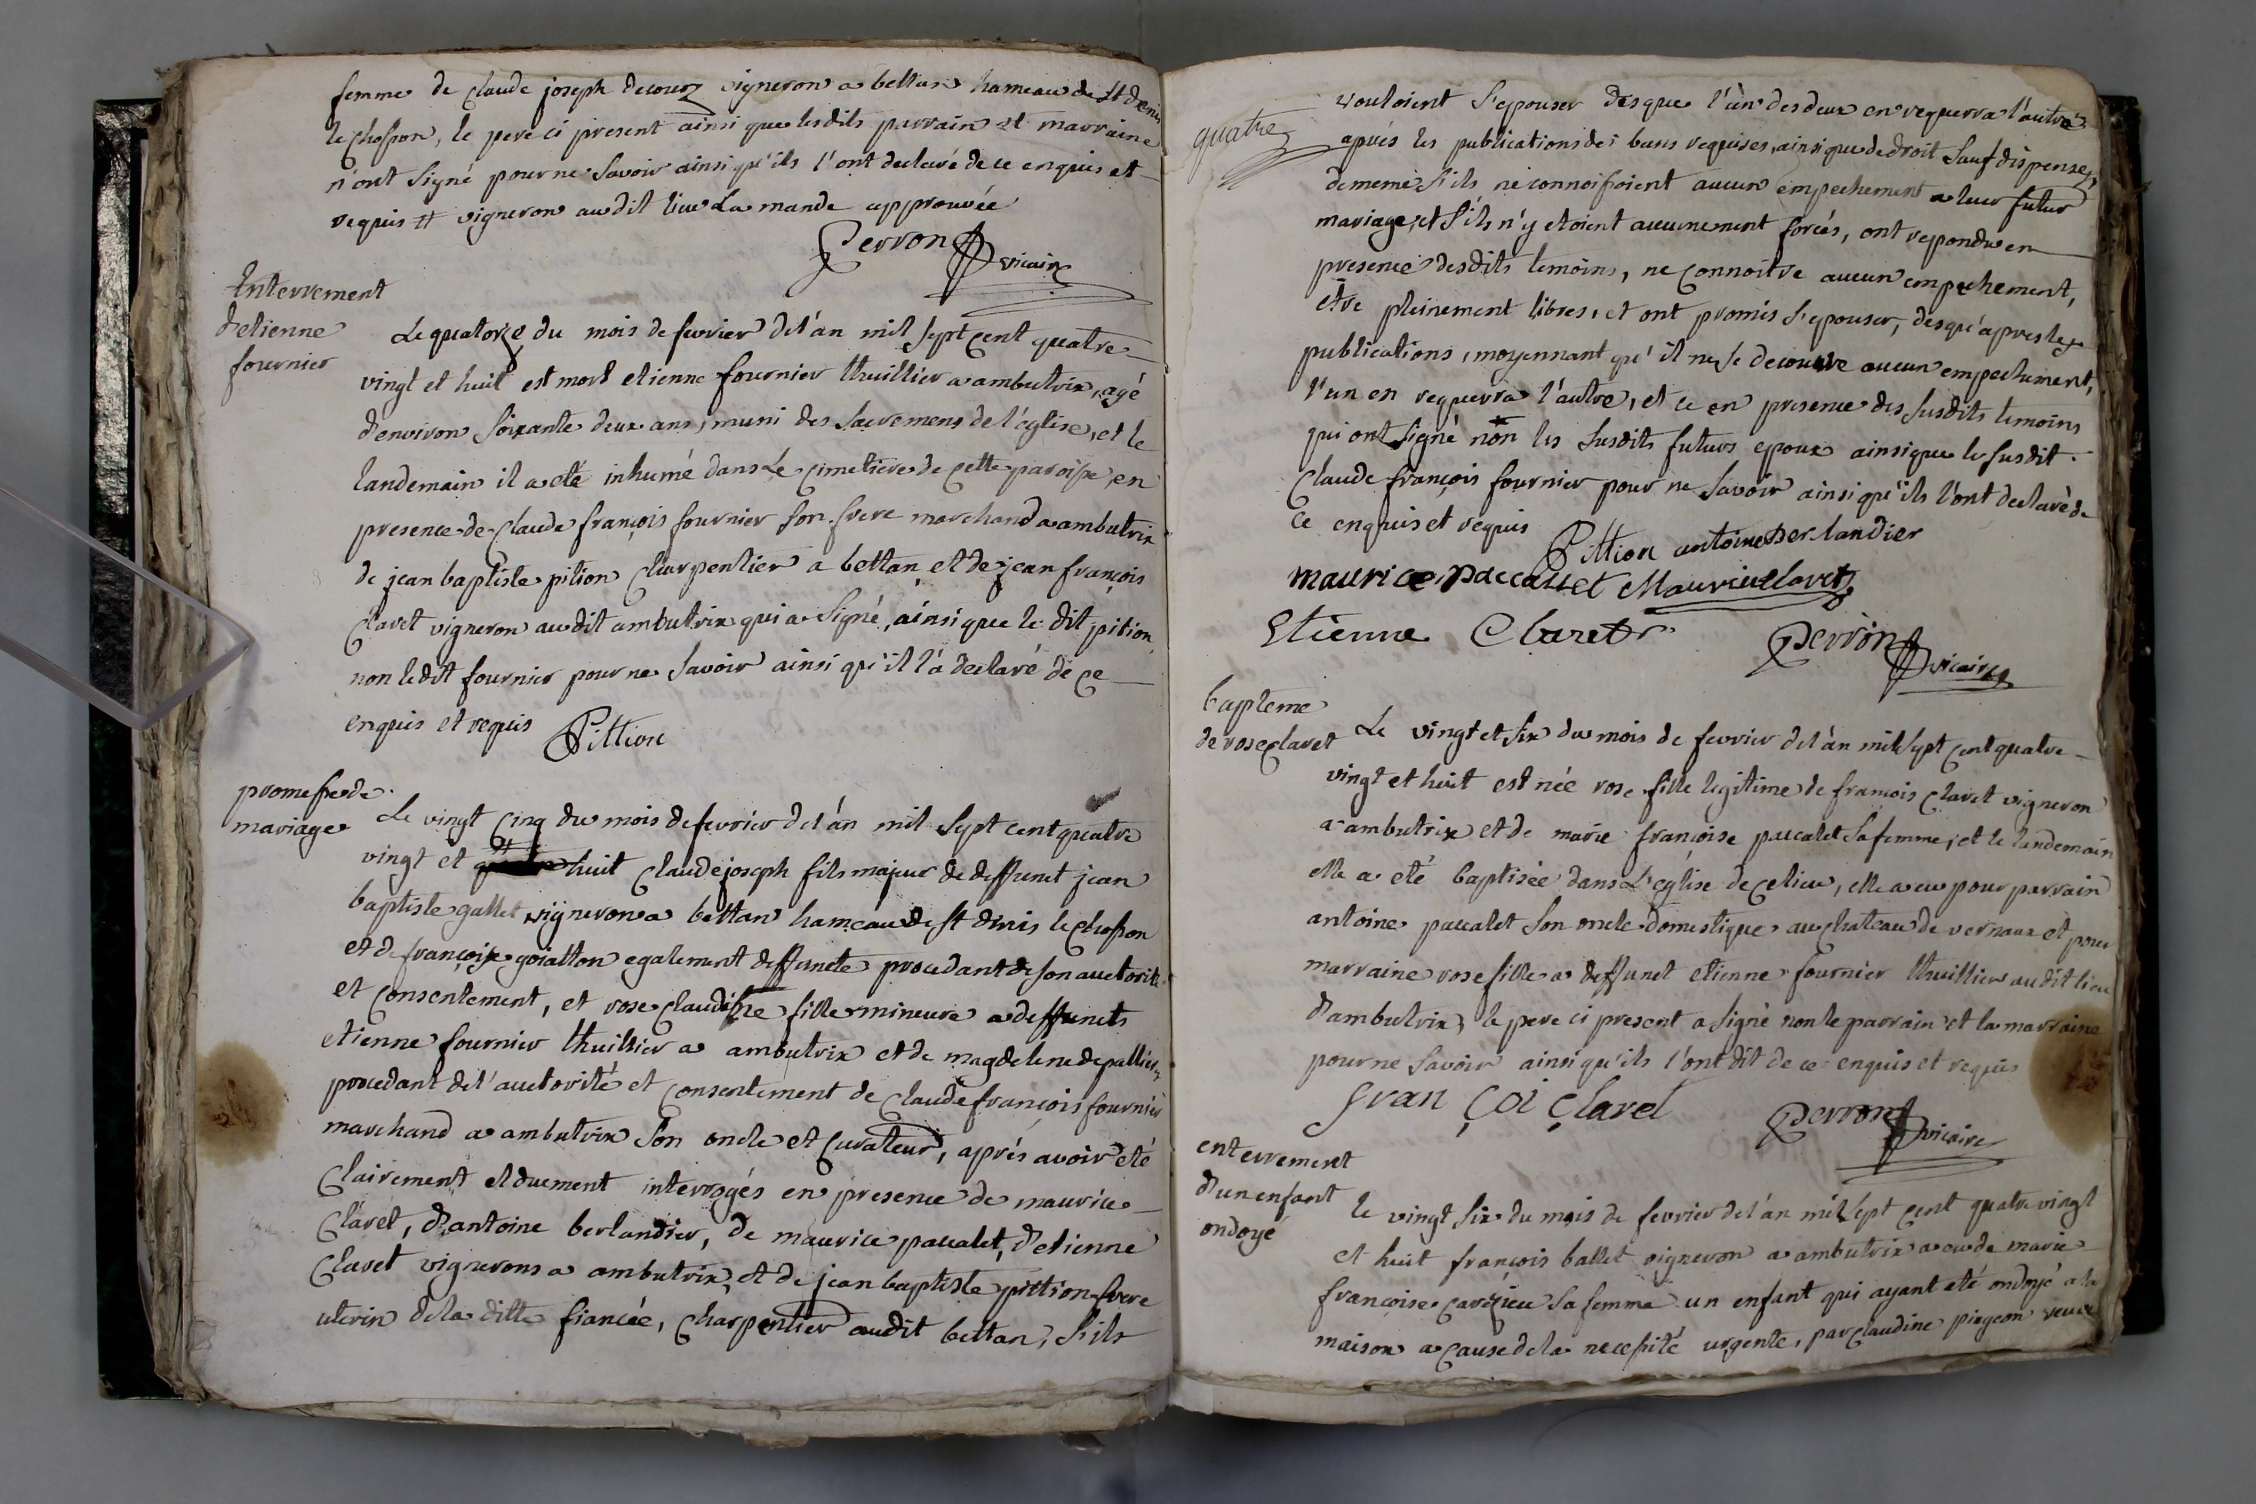 femme de Claude joseph decourz vigneron a bettan hameau de St denis
le Chosson, le pere ci present ainsi que lesdits parrain et marraine
n'ont Signé pour ne Savoir ainsi qu'ils l'ont declaré de ce enquis et
requis # vigneron audit lieu La mande approuvée
Perron vicaire
Enterrement
d'etienne
fournier
Le quatorze du mois de fevrier de l'an mil Sept Cent quatre
vingt et huit est mort etienne fournier thuillier a ambutrix, agé
d'environ Soixante deux ans, muni des Sacremens de l'église, et le
landemain il a eté inhumé dans Le Cimetiere de Cette paroisse, en
presence de Claude françois fournier Son frere marchand a ambutrix
de jean baptiste pition Charpentier a bettan et de jean françois
Claret vigneron audit ambutrix qui a Signé, ainsi que le dit pition,
non ledit fournier pour ne Savoir ainsi qu'il l'a declaré de Ce
enquis et requis Pittion
promesse de
mariage
Le vingt Cinq du mois de fevrier de l'an mil Sept Cent quatre
vingt et huit Claude joseph fils majeur de deffunct jean
baptiste gallet vigneron a bettan hameau de St denis le Chosson
et de françoise goiatton egalement deffuncte procedant de Son auctorité
et Consentement, et rose Claudine fille mineure a deffuncts
etienne fournier thuillier a ambutrix et de magdelene depallier
procedant de l'auctorité et Consentement de Claude françois fournier
marchand a ambutrix Son oncle et Curateur, aprés avoir eté
Clairement et duement interrogés en presence de maurice
Claret, d'antoine berlandier, de maurice paccalet, d'etienne
Claret vignerons a ambutrix, et de jean baptiste pittion frere
uterin de la ditte fiancée, Charpentier audit bettan, S'ils
quatre
vouloient S'epouser des que l'un des deux en requerra l'autre
aprés les publications des bans requises, ainsi que de droit Sauf dispense,
de meme S'ils ne connoissoient aucun empechement a leur futur
mariage, et S'ils n'y etoient aucunement forcés, ont repondu en
presence desdits temoins, ne Connoitre aucun empechement,
etre pleinement libres, et ont promis S'epouser, des qu'apres les
publications, moyennant qu'il ne Se decouvre aucun empechement,
l'un en requerra l'autre, et ce en presence des Susdits temoins
qui ont Signé non les Susdits futurs epoux ainsi que le Susdit
Claude françois fournier pour ne Savoir ainsi qu'ils l'ont declaré de
Ce enquis et requis
Pittion antoine Berlandier
maurice paccallet Maurice Claret
Etienne Claret Perron vicaire
bapteme
de rose Claret
Le vingt et Six du mois de fevrier de l'an mil Sept Cent quatre
vingt et huit est née rose fille legitime de francois Claret vigneron
a ambutrix et de marie françoise paccalet Sa femme, et le landemain
elle a eté baptisée dans L'église de Ce lieu, elle a eu pour parrain
antoine paccalet Son oncle domestique au Chateau de vernaux et pour
marraine rose fille a deffunct etienne fournier thuillier audit lieu
d'ambutrix, le pere ci present a Signé non le parrain et la marraine
pour ne Savoir ainsi qu'ils l'ont dit de ce enquis et requis
fran Çoi Claret Perron vicaire
enterrement
d'un enfant
ondoyé
le vingt Six du mois de fevrier de l'an mil Sept Cent quatre vingt
et huit françois ballet vigneron a ambutrix a eu de marie
françoise Sa femme un enfant qui ayant eté ondoyé a la
maison a Cause de la necessité urgente, par Claudine pingeon veuve